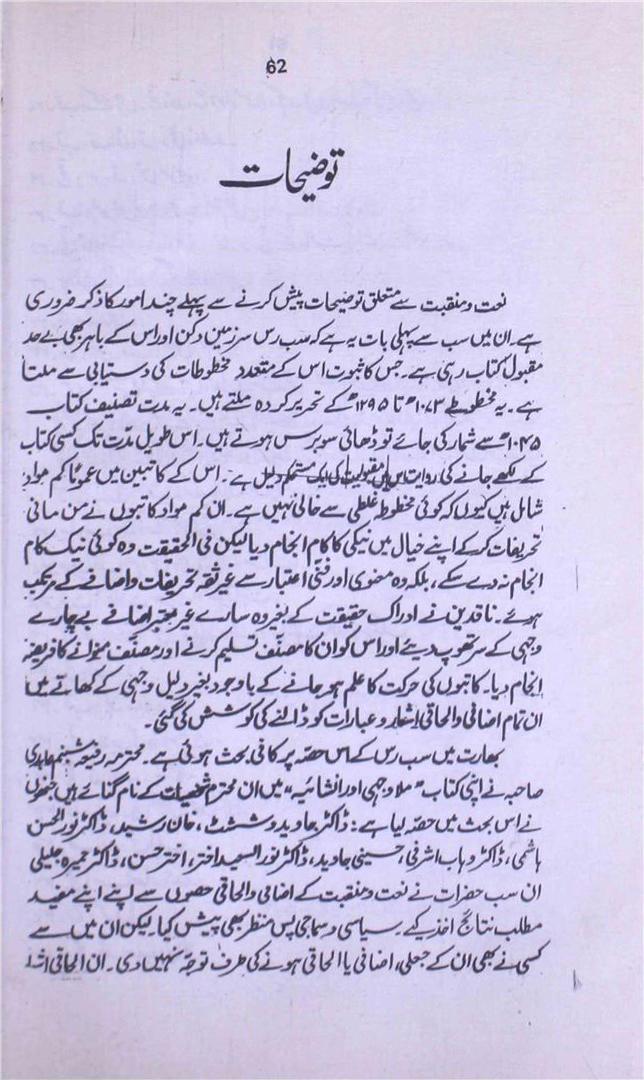 62
توضیحات
نعت و منقبت سے متعلق توضیحات پیش کرنے سے پہلے چند امور کا ذکر ضروری
ہے۔ ان میں سب سے پہلی بات یہ ہے کہ سب رس سرزمین دکن اور اس کے باہر بھی بے حد
مقبول کتاب رہی ہے۔ جس کا ثبوت اس کے متعدد مخطوطات کی دستیابی سے ملتا
ہے۔ یہ مخطوطے ۱۰۷۳ھ تا ۱۲۹۵ھ کے تحریر کردہ ملتے ہیں۔ یہ مدت تصنیف کتاب
۱۰۴۵ھ سے شمار کی جائے تو ڈھائی سو برس ہوتے ہیں۔ اس طویل مدّت تک کسی کتاب
کے لکھے جانے کی روایت اس کی مقبولیت کی ایک مستحکم دلیل ہے۔ اس کے کاتبین میں عموماً کم مواد
شامل ہیں کیوں کہ کوئی مخطوط غلطی سے خالی نہیں ہے۔ ان کم مواد کاتبوں نے من مانی
تحریفات کرکے اپنے خیال میں نیکی کا کام انجام دیا لیکن فی الحقیقت وہ کوئی نیک کام
انجام نہ دے سکے، بلکہ وہ معنوی اور فنّی اعتبار سے غیر ثقہ تحریفات و اضافے کے مرتکب
ہوئے۔ ناقدین نے ادراک حقیقت کے بغیر وہ سارے غیر معتبر اضافے بے چارے
وجہی کے سر تھوپ دیئے اور اس کو ان کا مصنّف تسلیم کرنے اور مصنّف منوانے کا فریضہ
انجام دیا۔ کاتبوں کی حرکت کا علم ہو جانے کے باوجود بغیر دلیل وجہی کے کھاتے میں
ان تمام اضافی و الحاقی اشعار و عبارات کو ڈالنے کی کوشش کی گئی۔
بھارت میں سب رس کے اس حصہ پر کافی بحث ہوئی ہے۔ محترمہ رفیعہ شبنم عابدی
صاحبہ نے اپنی کتاب "ملا وجہی اور انشائیہ" میں ان محترم شخصیات کے نام گنائے ہیں جنھوں
نے اس بحث میں حصّہ لیا ہے: ڈاکٹر جاوید وششٹ، خان رشید، ڈاکٹر نور الحسن
ہاشمی، ڈاکٹر وہاب اشرفی، حسینی جاوید، ڈاکٹر نور السعید اختر، اختر حسن، ڈاکٹر حمیرہ جلیلی
ان سب حضرات نے نعت و منقبت کے اضافی و الحاقی حصوں سے اپنے اپنے مفید
مطلب نتائج اخذ کیے۔ سیاسی و سماجی پس منظر بھی پیش کیا۔ لیکن ان میں سے
کسی نے بھی ان کے جعلی، اضافی یا الحاقی ہونے کی طرف توجّہ نہیں دی۔ ان الحاقی